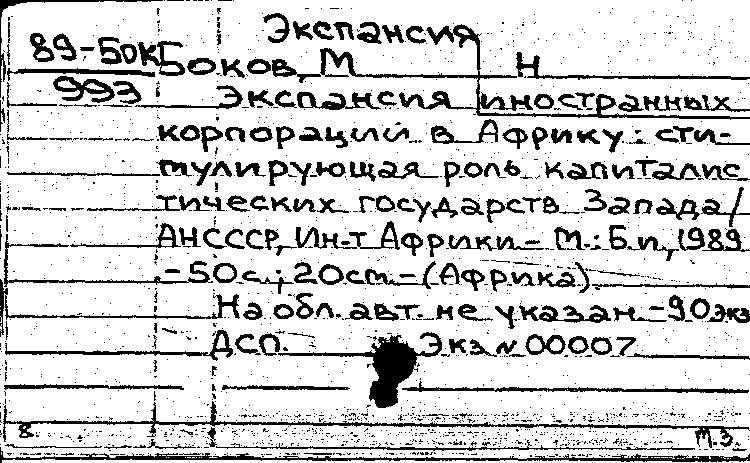 Экспансия
89-50К Боков, М Н
993 Экспансия иностранных
корпораций в Африку: сти-
мулирующая роль капиталис
тических государств Запада/
АНСССР, Ин-т Африки.- М.: Б.и., 1989
.-50с.; 20см.-(Африка).
На обл. авт. не указан.-90экз
ДСП. Экз № 00007
8. М.З.